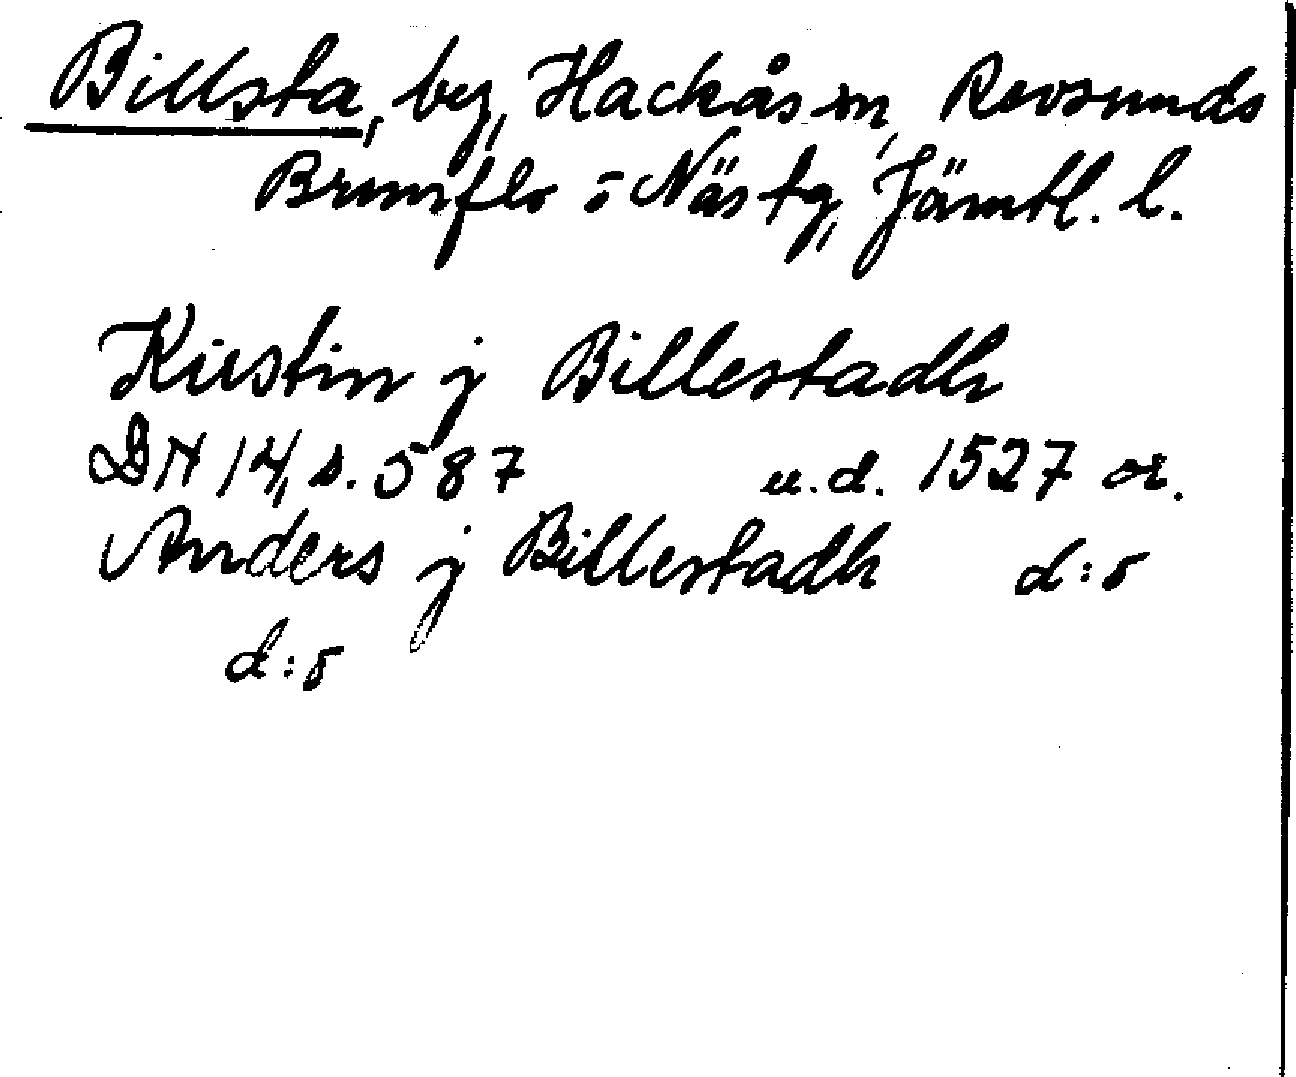 Billsta, by, Hackås sn, Revsunds
Brunflo o Näs tg, Jämtl. l.
Kirstin j Billestadh
DN 14, s. 587 u.d. 1527 or.
Anders j Billestadh d:o
d:o